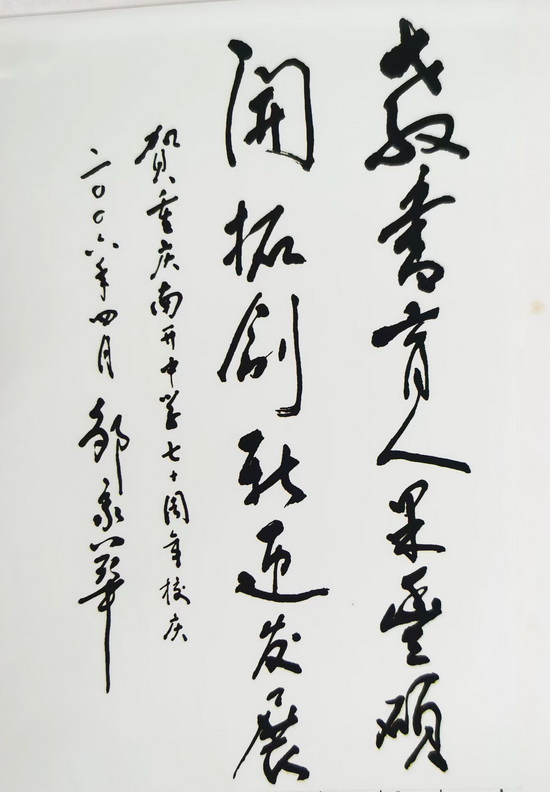 教書育人果豐碩
開拓創新迎发展
贺重庆南开中学七十周年校庆
二〇〇六年四月 邹家华